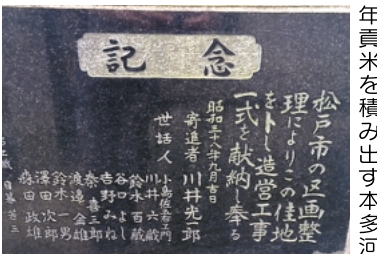 年貢米を積み出す本多河
記念
松戸市の区画整
理によりこの佳地
を卜し造営工事
一式を献納し奉る
昭和三十八年九月吉日
寄進者 川井光一郎
世話人 小島佐右エ門
川井六蔵
鈴木百蔵
谷口よし
吉野みね
秦喜三郎
渡邉金雄
鈴木一男
澤田次郎
森田政雄